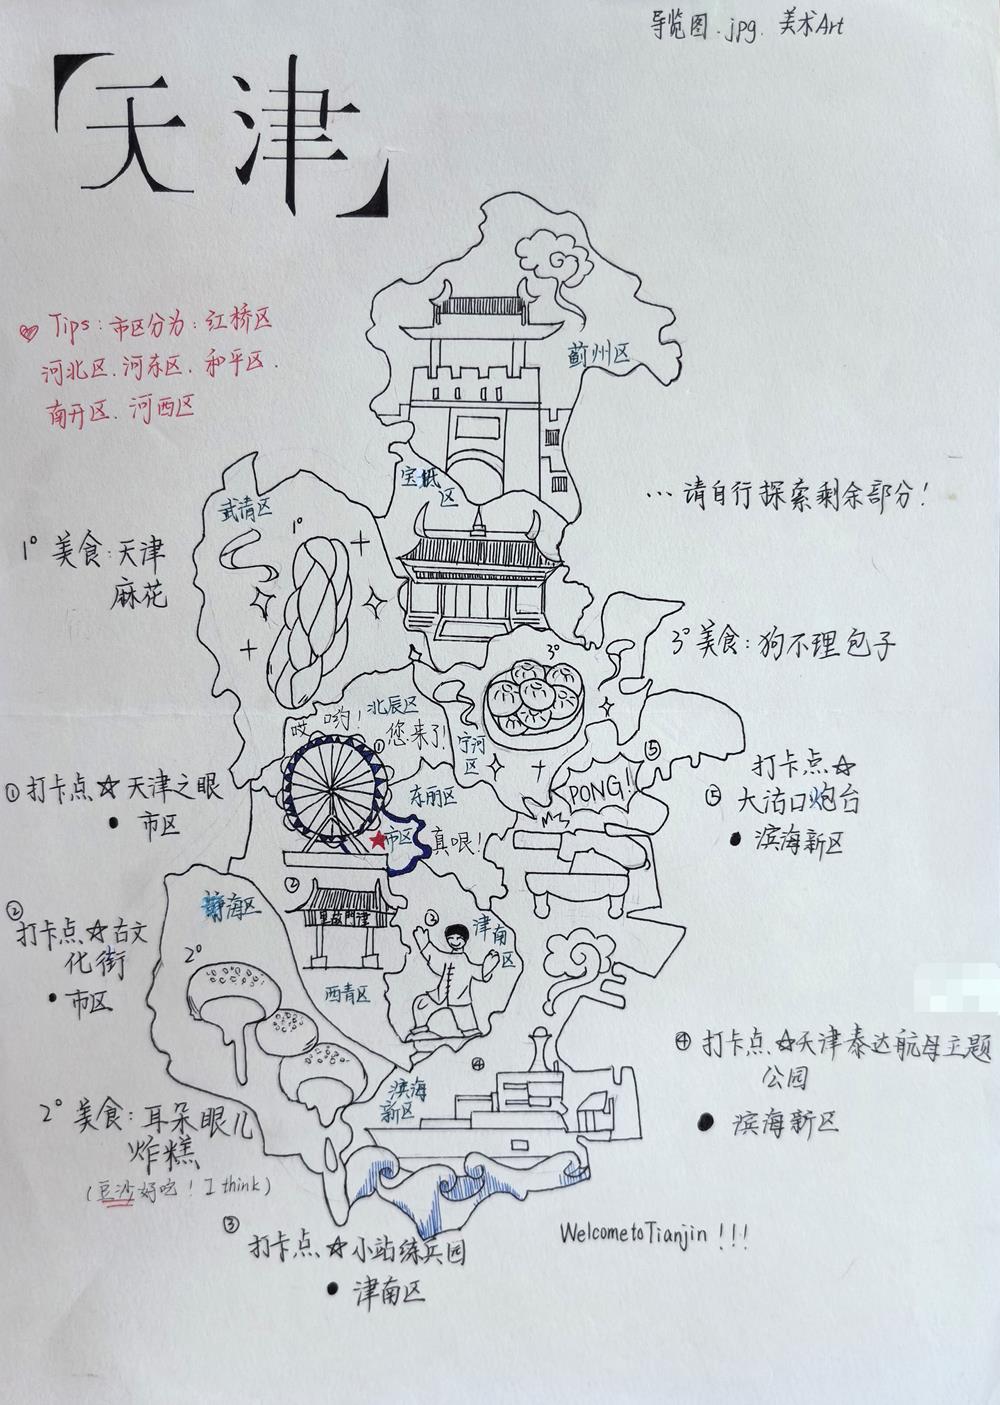 导览图.jpg. 美术Art
「天津」
Tips：市区分为：红桥区
河北区.河东区.和平区.
南开区.河西区
蓟州区
宝坻
区
武清区
1°
…请自行探索剩余部分！
1° 美食：天津
麻花
3° 美食：狗不理包子
3°
哎哟！
北辰区
您来了！
①
宁河
区
⑤
PONG!!
①打卡点☆天津之眼
● 市区
东丽区
市区
真哏！
打卡点☆
⑤ 大沽口炮台
● 滨海新区
②
静海区
③
津南
区
②
打卡点☆古文
化街
● 市区
2°
西青区
④
④ 打卡点☆天津泰达航母主题
公园
● 滨海新区
滨海
新区
2° 美食：耳朵眼儿
炸糕
（豆沙好吃！I think）
③
打卡点☆小站练兵园
● 津南区
Welcome to Tianjin !!!